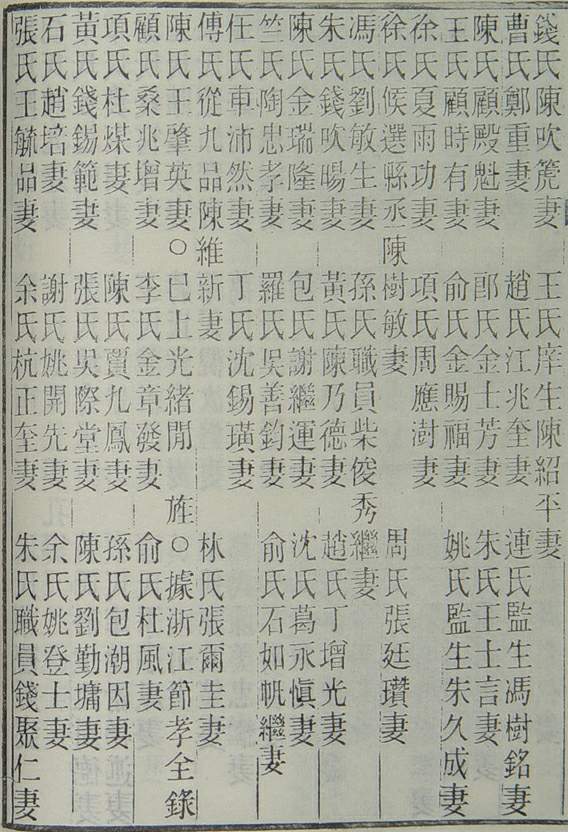 錢氏陳吹箎妻 王氏庠生陳紹平妻
曹氏鄭重妻 趙氏江兆奎妻 連氏監生馮樹銘妻
陳氏顧殿魁妻 郎氏金士芳妻 朱氏王士言妻
王氏顧時有妻 俞氏金賜福妻 姚氏監生朱久成妻
徐氏夏雨功妻 項氏周應澍妻
徐氏候選縣丞陳樹敏妻 周氏張廷瓚妻
馮氏劉敏生妻 孫氏職員柴俊秀繼妻
朱氏錢吹暘妻 黃氏陳乃德妻 趙氏丁增光妻
陳氏金瑞隆妻 包氏謝繼運妻 沈氏葛永愼妻
竺氏陶忠孝妻 羅氏吳善鈞妻 俞氏石如帆繼妻
任氏車沛然妻 丁氏沈錫璜妻
傅氏從九品陳維新妻 林氏張爾圭妻
陳氏王肇英妻○已上光緒閒旌○據浙江節孝全錄
顧氏桑兆增妻 李氏金章發妻 俞氏杜風妻
項氏杜煤妻 陳氏賈九鳳妻 孫氏包潮因妻
黃氏錢錫範妻 張氏吳際堂妻 陳氏劉勤墉妻
石氏趙培妻 謝氏姚開先妻 余氏姚登士妻
張氏王毓品妻 余氏杭正奎妻 朱氏職員錢聚仁妻